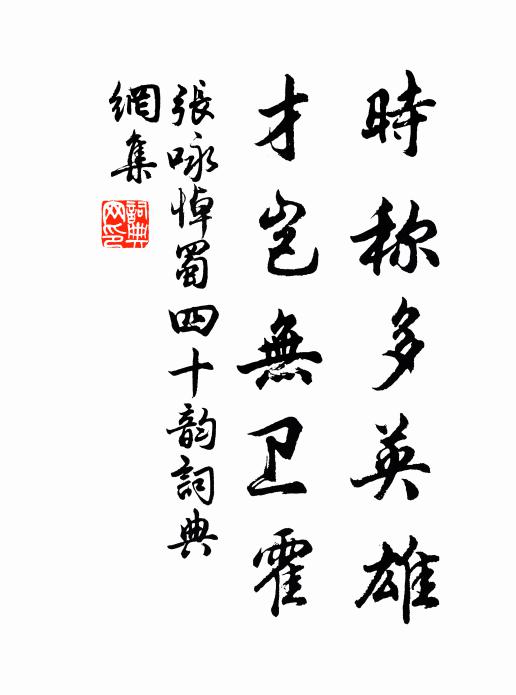 時称多英雄
才岂無卫霍
張咏悼蜀四十韵詞典
網集
詞典
网印